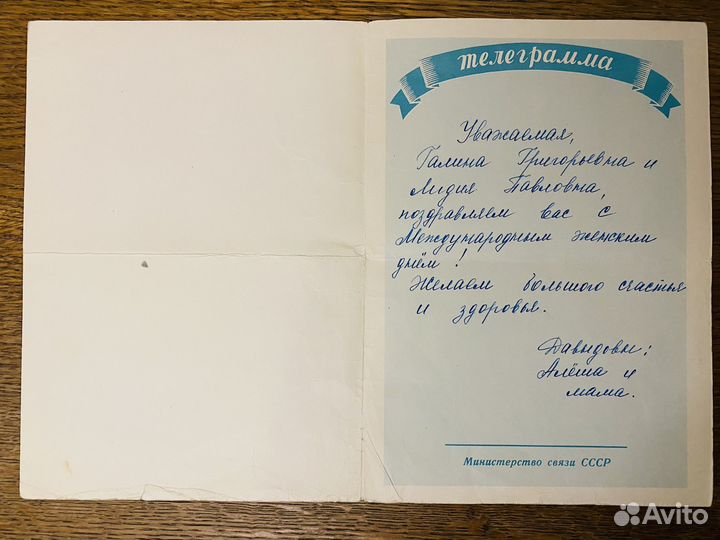 телеграмма
Уважаемая,
Галина Григорьевна и
Лидия Павловна,
поздравляем вас с
Международным женским
днём!
Желаем большого счастья
и здоровья.
Давыдовы:
Алёша и
мама.
Министерство связи СССР
Avito